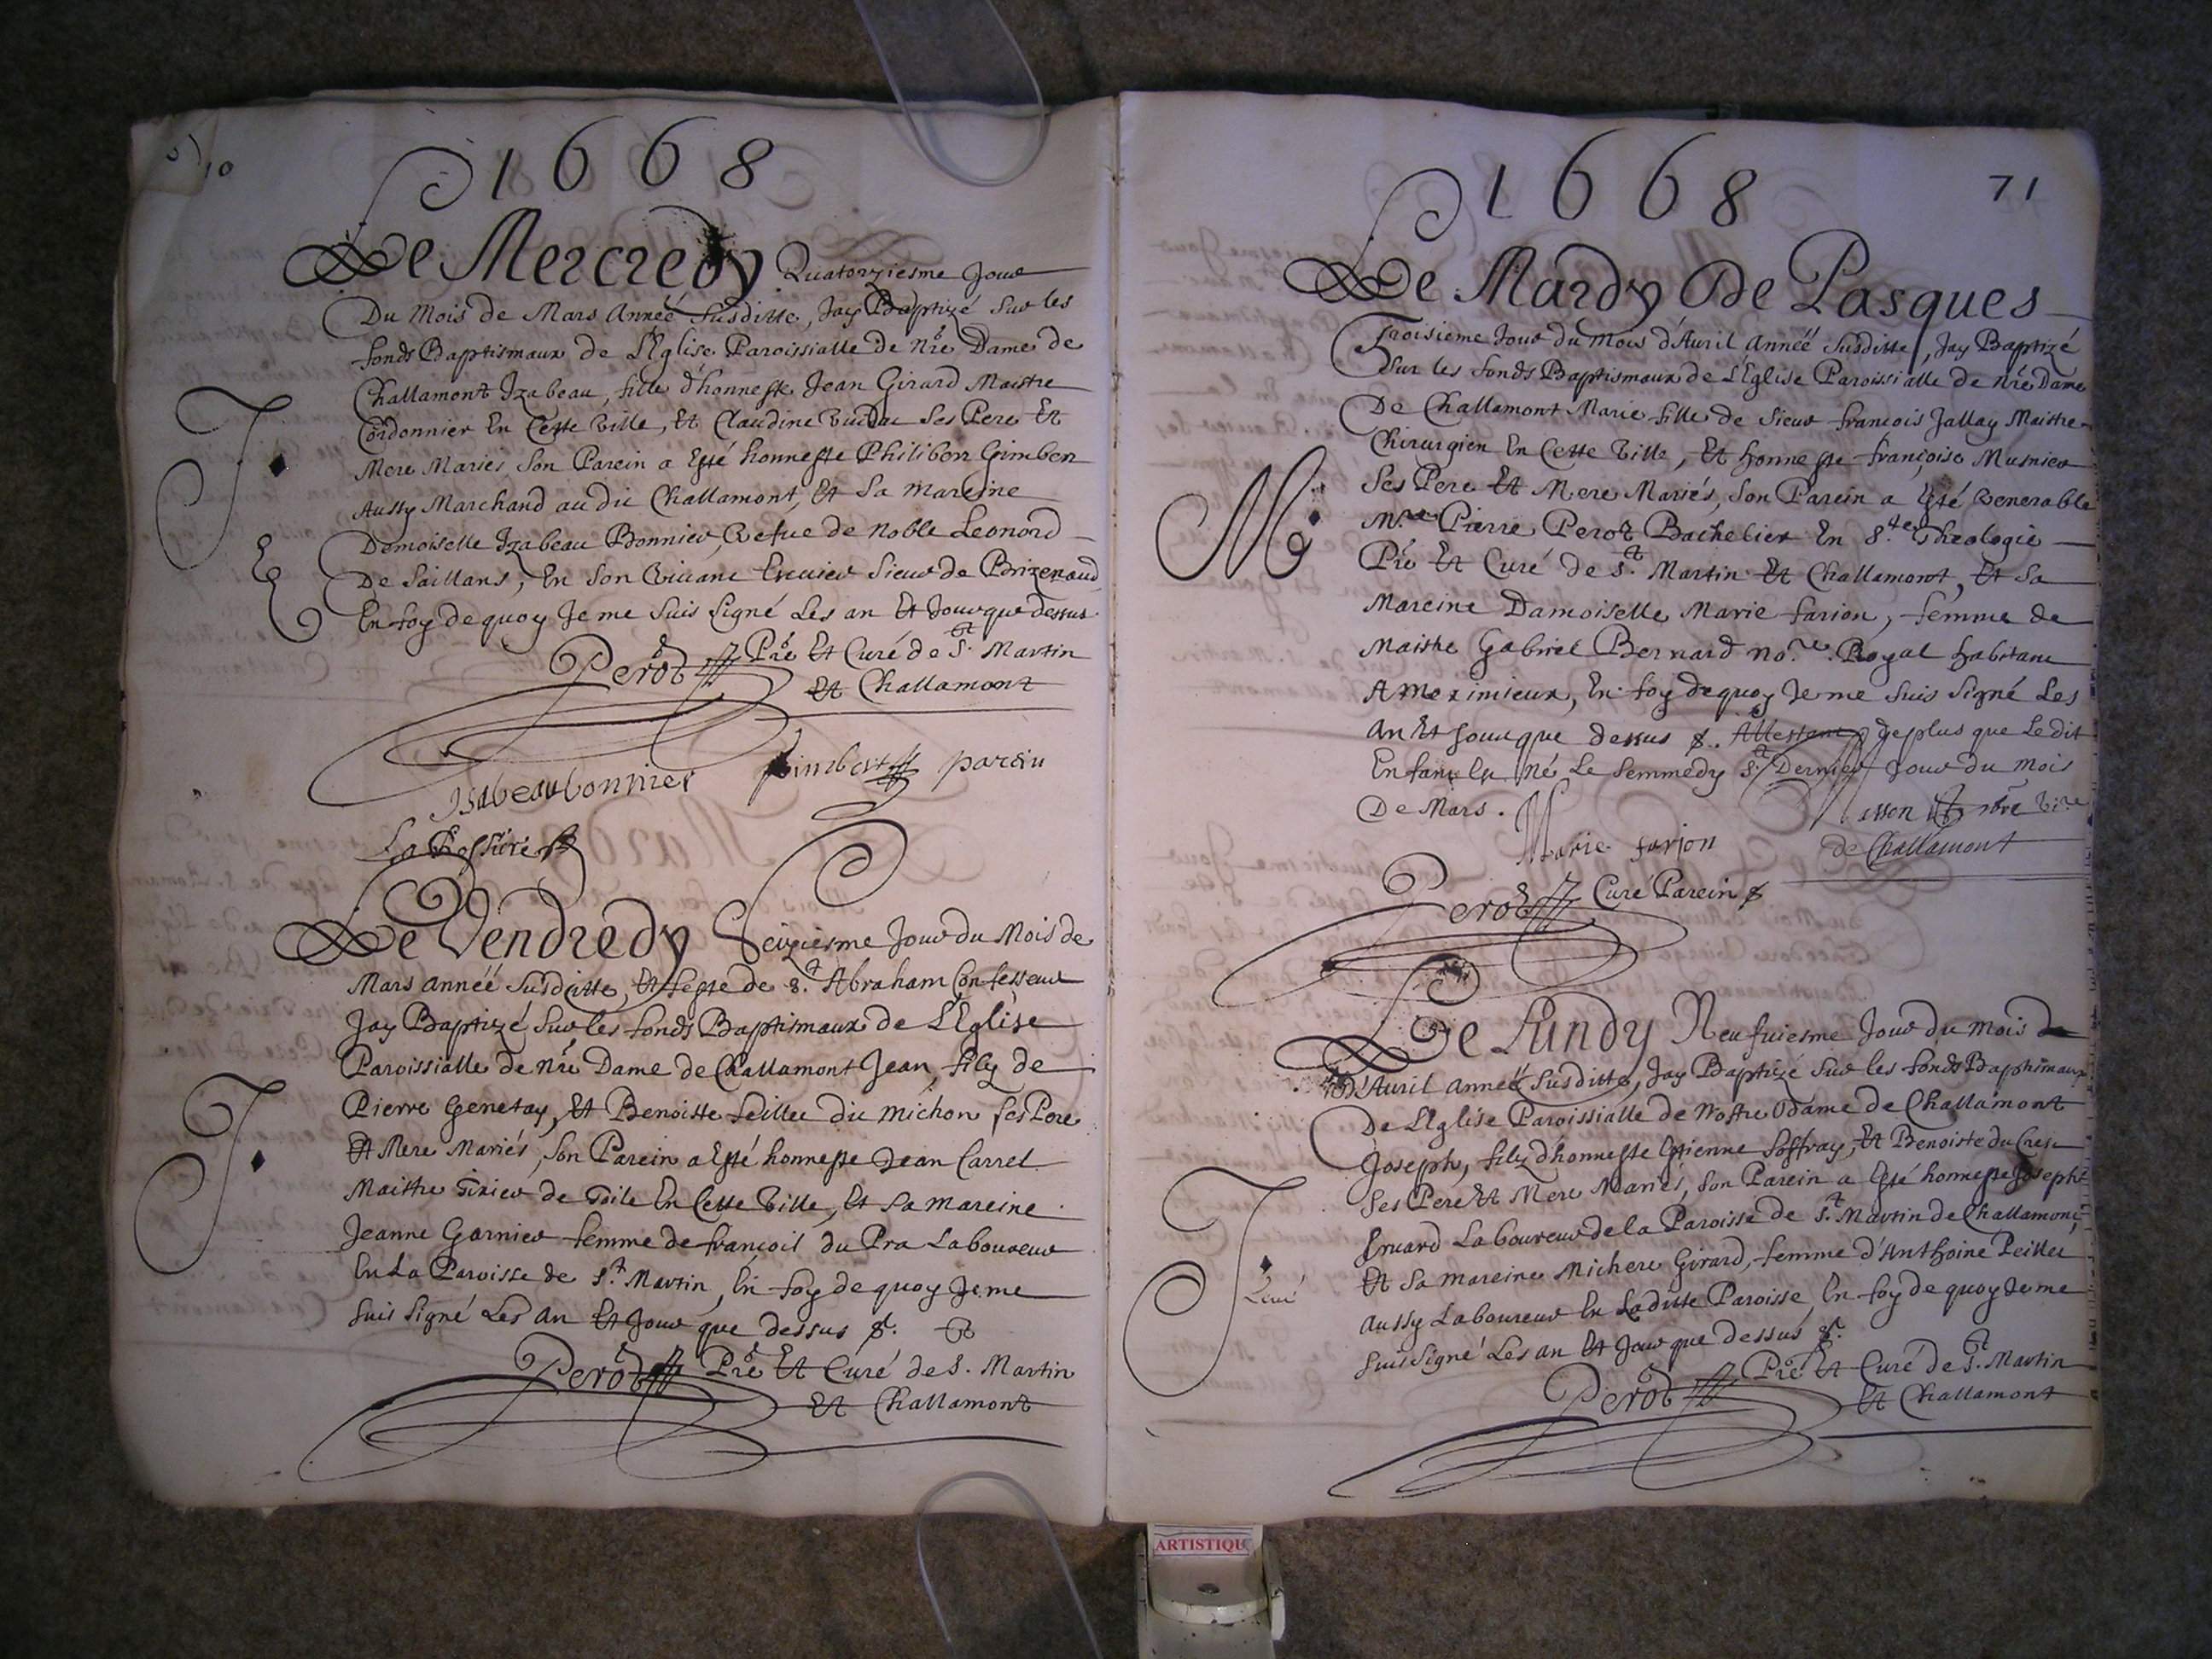 1668
Le Mercredy Quatorziesme Jour
Du Mois de Mars Année susditte, Jay Baptizé sur les
fonds Baptismaux de L'Eglise Paroissialle de Nre Dame de
Challamont Izabeau, fille d'honneste Jean Girard Maistre
Cordonnier En Cette Ville, Et Claudine Ses Pere Et
Mere Mariés Son Parein a Esté honneste Philibert Gimbert
Aussy Marchand au dit Challamont, Et Sa Mareine
Demoiselle Izabeau Bonnier, Vefue de Noble Leonord
De Saillans, En Son Viuant Escuier Sieur de Brizenaud
En foy de quoy Je me Suis Signé Les an Et Jour que dessus
Perot Pre Et Curé de St. Martin
Et Challamont
Isabeau bonnier Gimbert parein
Le Vendredy Seiziesme Jour du Mois de
Mars Année Susditte, Et feste de S.t Abraham Confesseur
Jay Baptizé Sur les fonds Baptismaux de L'Eglise
Paroissialle de Nre Dame de Challamont Jean, filz de
Pierre Genetay, Et Benoiste Seillee du Michon ses Pere
Et Mere Mariés, Son Parein a Esté honneste Jean Carrel
Maistre Tixier de Toile En Cette Ville, Et Sa Mareine
Jeanne Garnier femme de françois du Pra Laboureur
En La Paroisse de S.t Martin, En foy de quoy Je me
Suis Signé Les an Et Jour que dessus
Perot Pre Et Curé de St. Martin
Et Challamont
1668 71
Le Mardy De Pasques
Troisieme Jour du Mois d'Auril Année Susditte, Jay Baptizé
Sur les fonds Baptismaux de L'Eglise Paroissialle de Nre Dame
De Challamont Marie fille de Sieur francois Jallay Maistre
Chirurgien En Cette Ville, Et honneste françoise Musnier
Ses Pere Et Mere Mariés, Son Parein a Esté Venerable
Mre Pierre Perot Bachelier En S.te Theologie
Pre Et Curé de St. Martin Et Challamont, Et Sa
Mareine Damoiselle Marie farion, femme de
Maistre Gabriel Bernard no.re Royal habitant
A Meximieux, En foy de quoy Je me Suis Signé Les
An Et Jour que dessus Attestant de plus que Le dit
Enfant Est Né Le Semmedy St Dernier Jour du Mois
De Mars.
Marie farjon
de Challamont
Perot Curé Parein
Le Lundy Neufuiesme Jour du Mois de
D'Auril Année Susditte, Jay Baptizé Sur les fonds Baptismaux
De L'Eglise Paroissialle de Nostre Dame de Challamont
Joseph, filz d'honneste Estienne Soffray, Et Benoiste du Crest
Ses Pere Et Mere Mariés, Son Parein a Esté honneste Joseph
Laboureur de la Paroisse de S.t Martin de Challamont,
Et Sa Mareine Michere Girard, femme d'Anthoine Peillet
Aussy Laboureur En Laditte Paroisse, En foy de quoy Je me
Suis Signé Les an Et Jour que dessus
Perot Pre Et Curé de St. Martin
Et Challamont
ARTISTIQU